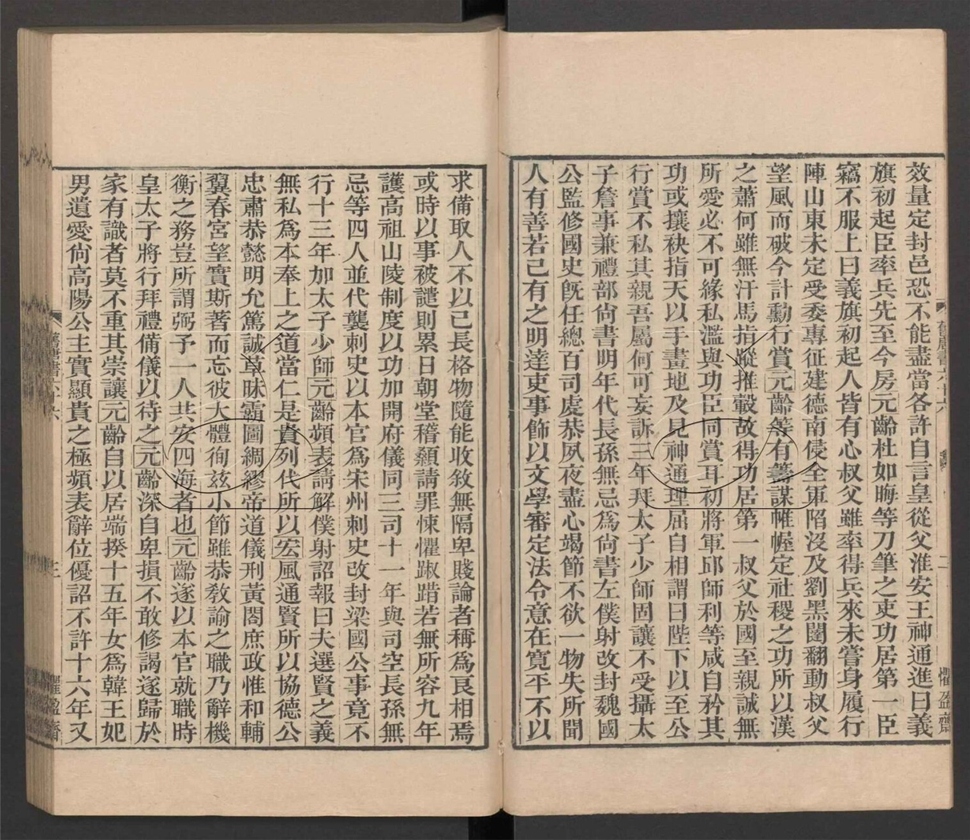 效量定封邑恐不能盡當各許自言皇從父淮安王神通進曰義
旗初起臣率兵先至今房元齡杜如晦等刀筆之吏功居第一臣
竊不服上曰義旗初起人皆有心叔父雖率得兵來未嘗身履行
陣山東未定受委專征建德南侵全軍陷沒及劉黑闥翻動叔父
望風而破今計勳行賞元齡等有籌謀帷幄定社稷之功所以漢
之蕭何雖無汗馬指蹤推轂故得功居第一叔父於國至親誠無
所愛必不可緣私濫與功臣同賞耳初將軍邱師利等咸自矜其
功或攘袂指天以手畫地及見神通理屈自相謂曰陛下以至公
行賞不私其親吾屬何可妄訴三年拜太子少師固讓不受攝太
子詹事兼禮部尚書明年代長孫無忌為尚書左僕射改封魏國
公監修國史既任總百司處恭夙夜盡心竭節不欲一物失所聞
人有善若己有之明達吏事飾以文學審定法令意在寬平不以
舊唐書六十六
二
懼盈齋
求備取人不以己長格物隨能收敘無隔卑賤論者稱為良相焉
或時以事被譴則累日朝堂稽顙請罪悚懼踧踖若無所容九年
護高祖山陵制度以功加開府儀同三司十一年與司空長孫無
忌等四人並代襲刺史以本官為宋州刺史改封梁國公事竟不
行十三年加太子少師元齡頻表請解僕射詔報曰夫選賢之義
無私為本奉上之道當仁是貴列代所以宏風通賢所以協德公
忠肅恭懿明允篤誠草昧霸圖綢繆帝道儀刑黃閣庶政惟和輔
翼春宮望實斯著而忘彼大體徇茲小節雖恭教諭之職乃辭機
衡之務豈所謂弼予一人共安四海者也元齡遂以本官就職時
皇太子將行拜禮備儀以待之元齡深自卑損不敢修謁遂歸於
家有識者莫不重其崇讓元齡自以居端揆十五年女為韓王妃
男遺愛尚高陽公主實顯貴之極頻表辭位優詔不許十六年又
舊唐書六十六
三
懼盈齋